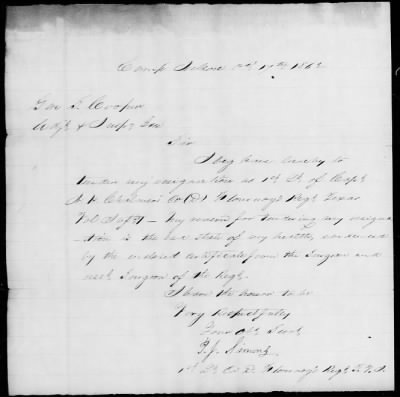 Camp Nelson Oct 17th 1862
Gen S. Cooper
Adjt & Insp Gen
Sir
I beg leave hereby to
tender my resignation as 1st Lt. of Capt
Co (D) Flournoy's Regt Texas
Vol Inft — My reason for tendering my resigna
-tion is the bad state of my health, evidenced
by the enclosed certificate from the Surgeon and
asst Surgeon of the Regt.
I have the honor to be
Very Respectfully
Your Obt Servt
T. J. Simons
1st Lt Co D. Flournoy's Regt T. V. I.